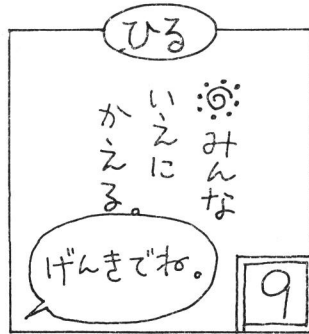 ひる
みんな
いえに
かえる。
げんきでね。
9